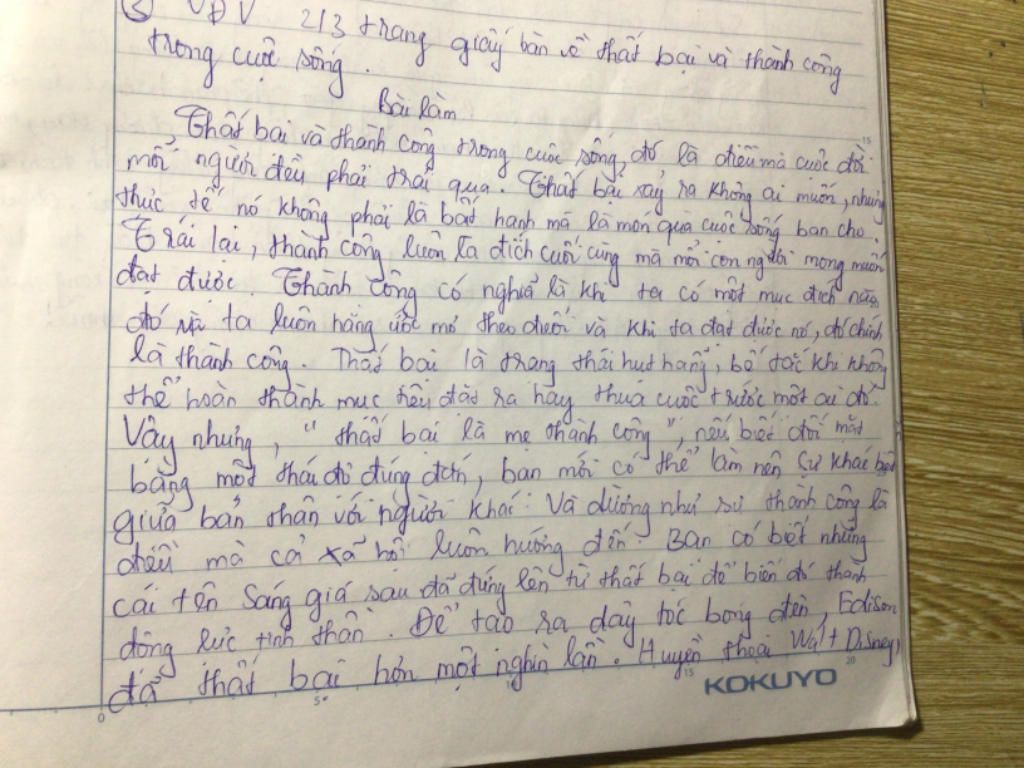 3 VĐV 2/3 trang giấy bàn về thất bại và thành công
trong cuộc sống.
Bài làm
Thất bại và thành công trong cuộc sống, đó là điều mà cuộc đời
mỗi người đều phải trải qua. Thất bại xảy ra không ai muốn, nhưng
thực tế nó không phải là bất hạnh mà là món quà cuộc sống ban cho.
Trái lại, thành công luôn là đích cuối cùng mà mỗi con người mong muốn
đạt được. Thành công có nghĩa là khi ta có một mục đích nào
đó mà ta luôn hằng ước mơ theo đuổi và khi ta đạt được nó, đó chính
là thành công. Thất bại là trạng thái hụt hẫng, bế tắc khi không
thể hoàn thành mục tiêu đặt ra hay thua cuộc trước một ai đó.
Vậy nhưng, "thất bại là mẹ thành công", nếu biết đối mặt
bằng một thái độ đúng đắn, bạn mới có thể làm nên sự khác biệt
giữa bản thân với người khác. Và dường như sự thành công là
điều mà cả xã hội luôn hướng đến. Bạn có biết những
cái tên sáng giá sau đã đứng lên từ thất bại để biến đó thành
động lực tinh thần. Để tạo ra dây tóc bóng đèn, Edison
đã thất bại hơn một nghìn lần. Huyền thoại Walt Disney,
KOKUYO
0 5 10 15 20
15